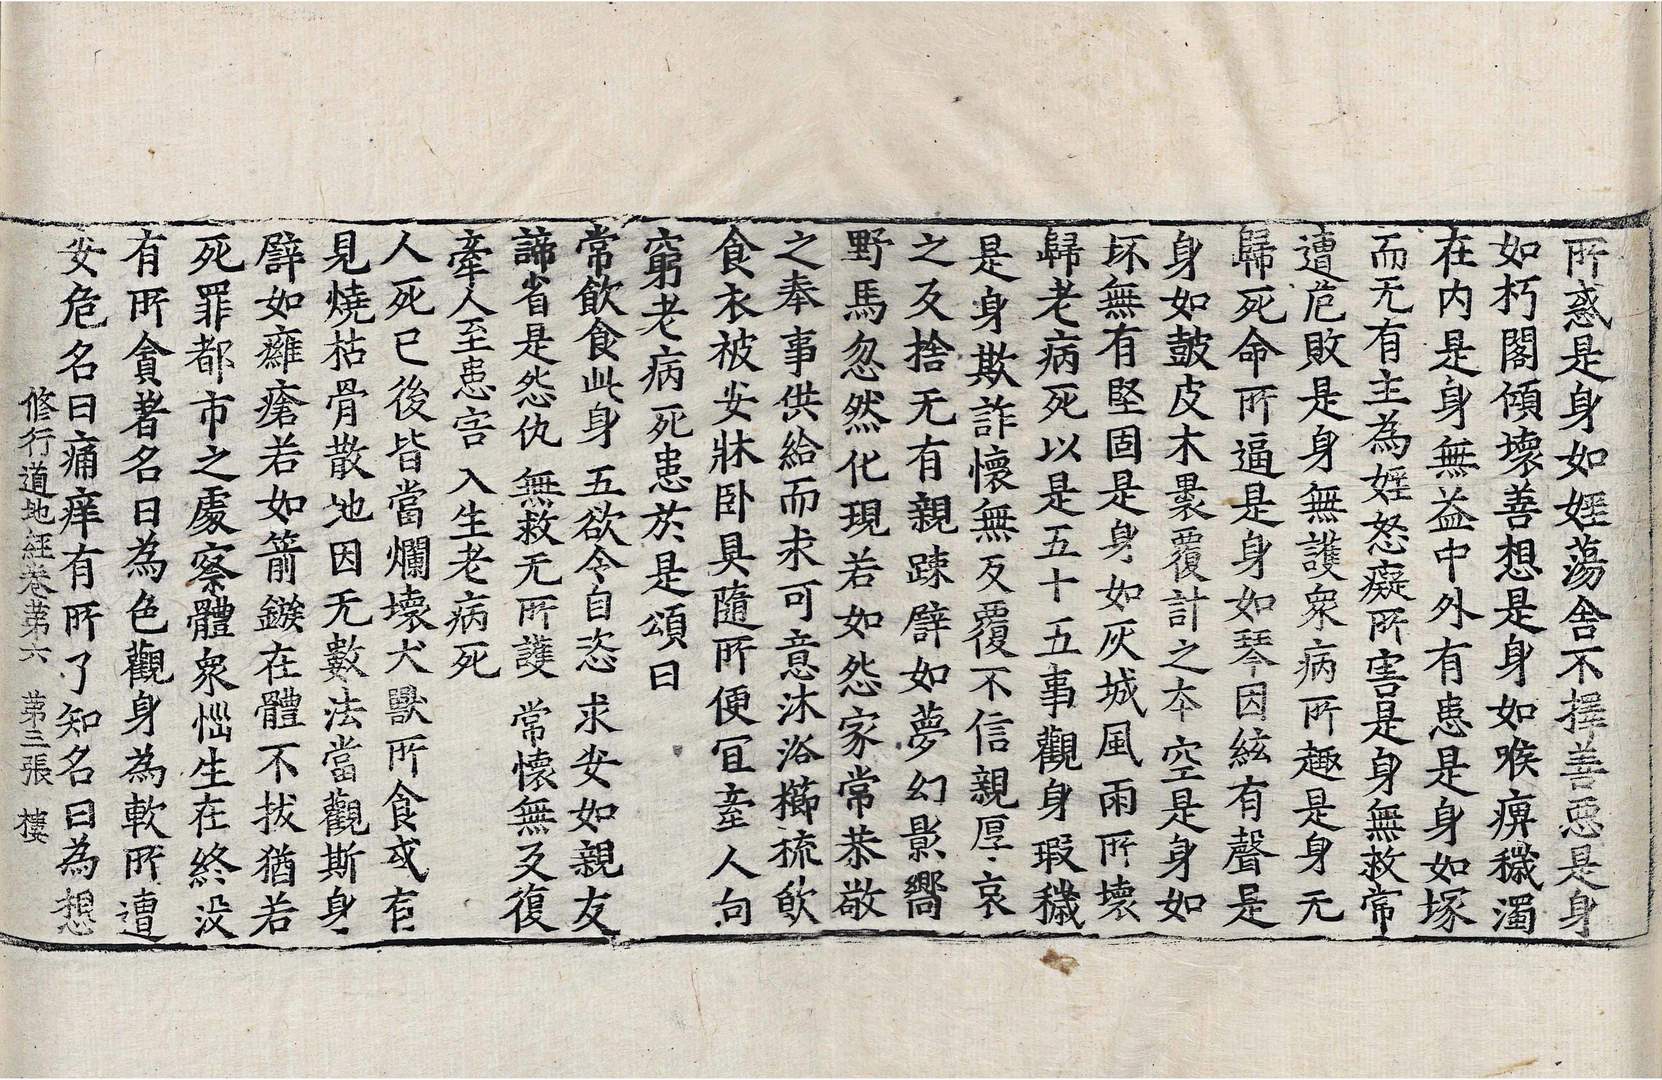 所惑是身如婬蕩舍不擇善惡是身
如朽閣傾壞善想是身如喉痹穢濁
在内是身無益中外有患是身如塚
而无有主為婬怒癡所害是身無救常
遭危敗是身無護衆病所趣是身无
歸死命所逼是身如琴因絃有聲是
身如皷皮木褁覆計之夲空是身如
坏無有堅固是身如灰城風雨所壞
歸老病死以是五十五事觀身瑕穢
是身欺詐懷無反覆不信親厚哀
之反捨无有親踈譬如夢幻影嚮
野馬忽然化現若如怨家常恭敬
之奉事供給而求可意沐浴櫛梳飲
食衣被安牀卧具隨所便冝牽人向
窮老病死患於是頌曰
常飲食此身 五欲令自恣 求安如親友
諦省是怨仇 無救无所護 常懷無反復
牽人至患害 入生老病死
人死已後皆當爛壞犬獸所食或有
見燒枯骨散地因无數法當觀斯身
譬如癰瘡若如箭鏃在體不拔猶若
死罪都市之處察體衆惱生在終没
有所貪著名曰為色觀身為軟所遭
安危名曰痛痒有所了知名曰為想
修行道地經卷苐六 苐三張 樓